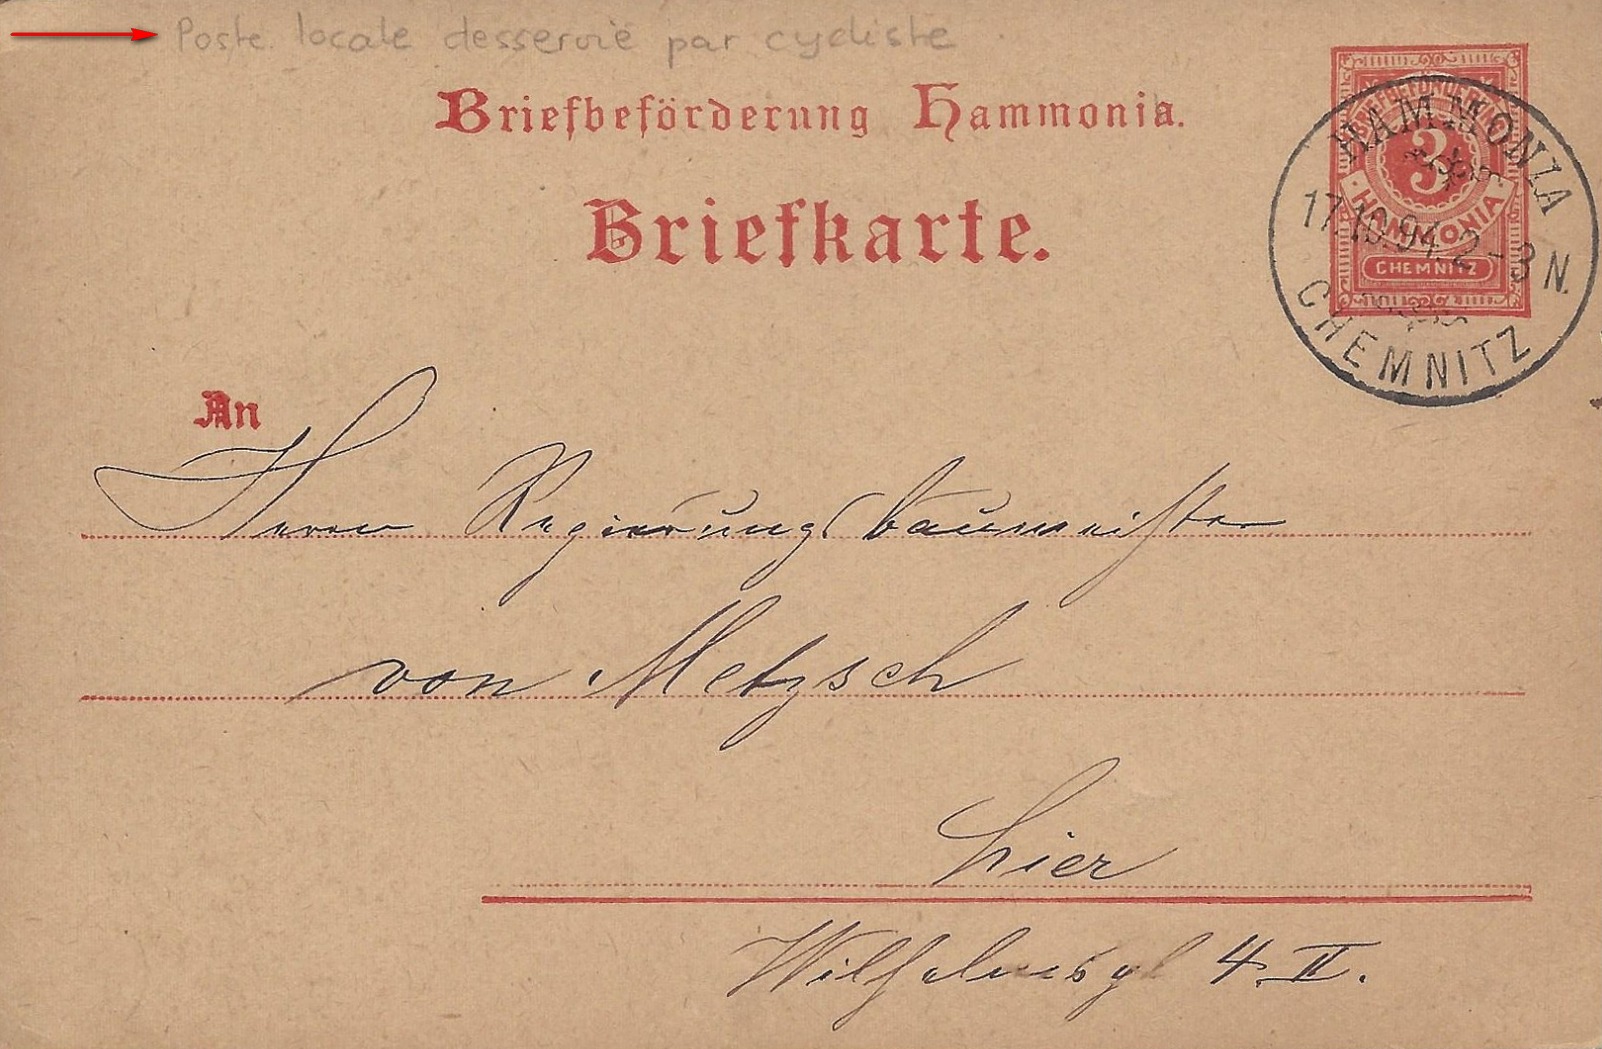 Poste locale desservie par cycliste
Briefbeförderung Hammonia.
Briefkarte.
BRIEFBEFÖRDERUNG
3
HAMMONIA
CHEMNITZ
HAMMONIA
17.10.94. 2-3 N.
CHEMNITZ
An
Herrn Regierungsbaumeister
von Metzsch
hier
Wilhelmspl 4 II.